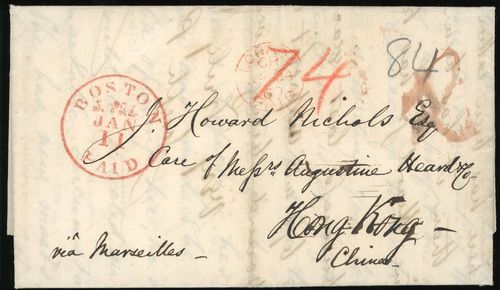 74
84
BOSTON
JAN
11
PAID
J. Howard Nichols Esq
Care of Messrs Augustine Heard & Co
Hong Kong –
China
viâ Marseilles –